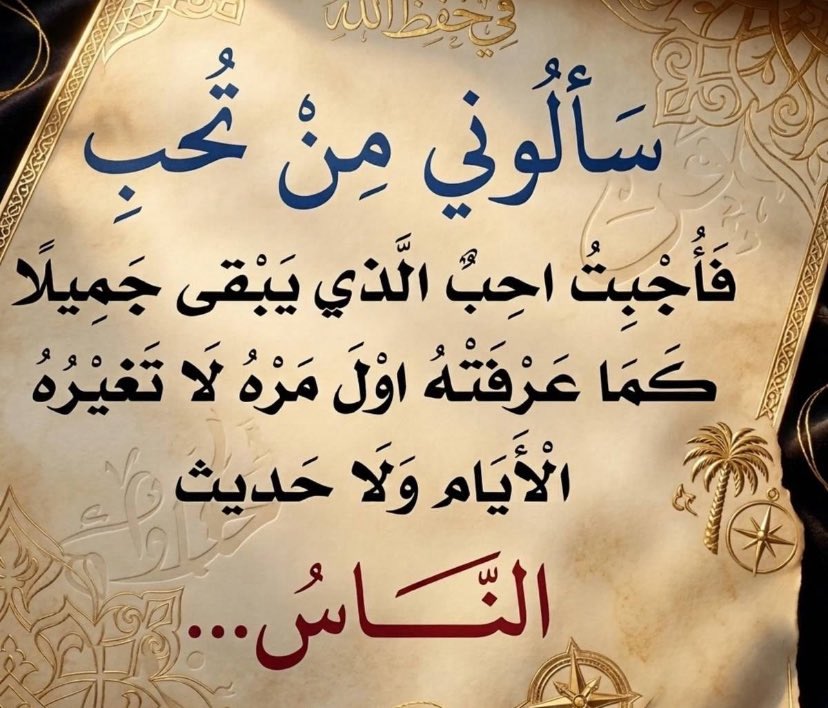 في حفظ الله
سَألُوني مِنْ تُحبِ
فَأُجْبِتُ احِبٌ الَّذي يَبْقى جَمِيلًا
كَمَا عَرْفَتْهُ اوْلَ مَرْهُ لَا تَغيْرُهُ
الْأَيَام وَلَا حَديث
النَّــاسُ...